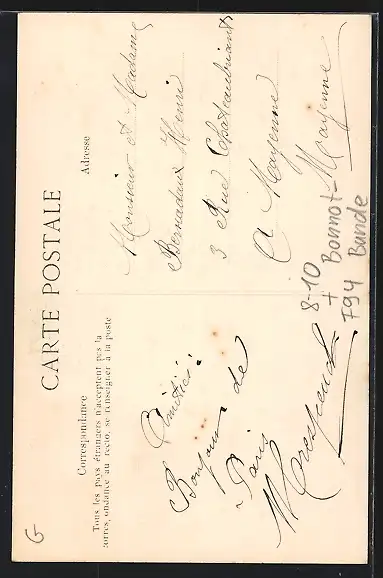 CARTE POSTALE
Correspondance
Tous les pays étrangers n'acceptent pas la
correspondance au recto, se renseigner à la poste
Adresse
Amitiés
Bonjour de
Paris
M Crespeuch
Monsieur et Madame
Bernadaux Henri
3 Rue Chateaubriant
A Mayenne
Mayenne
8-10
+ Bonnot-
794 Bande
G